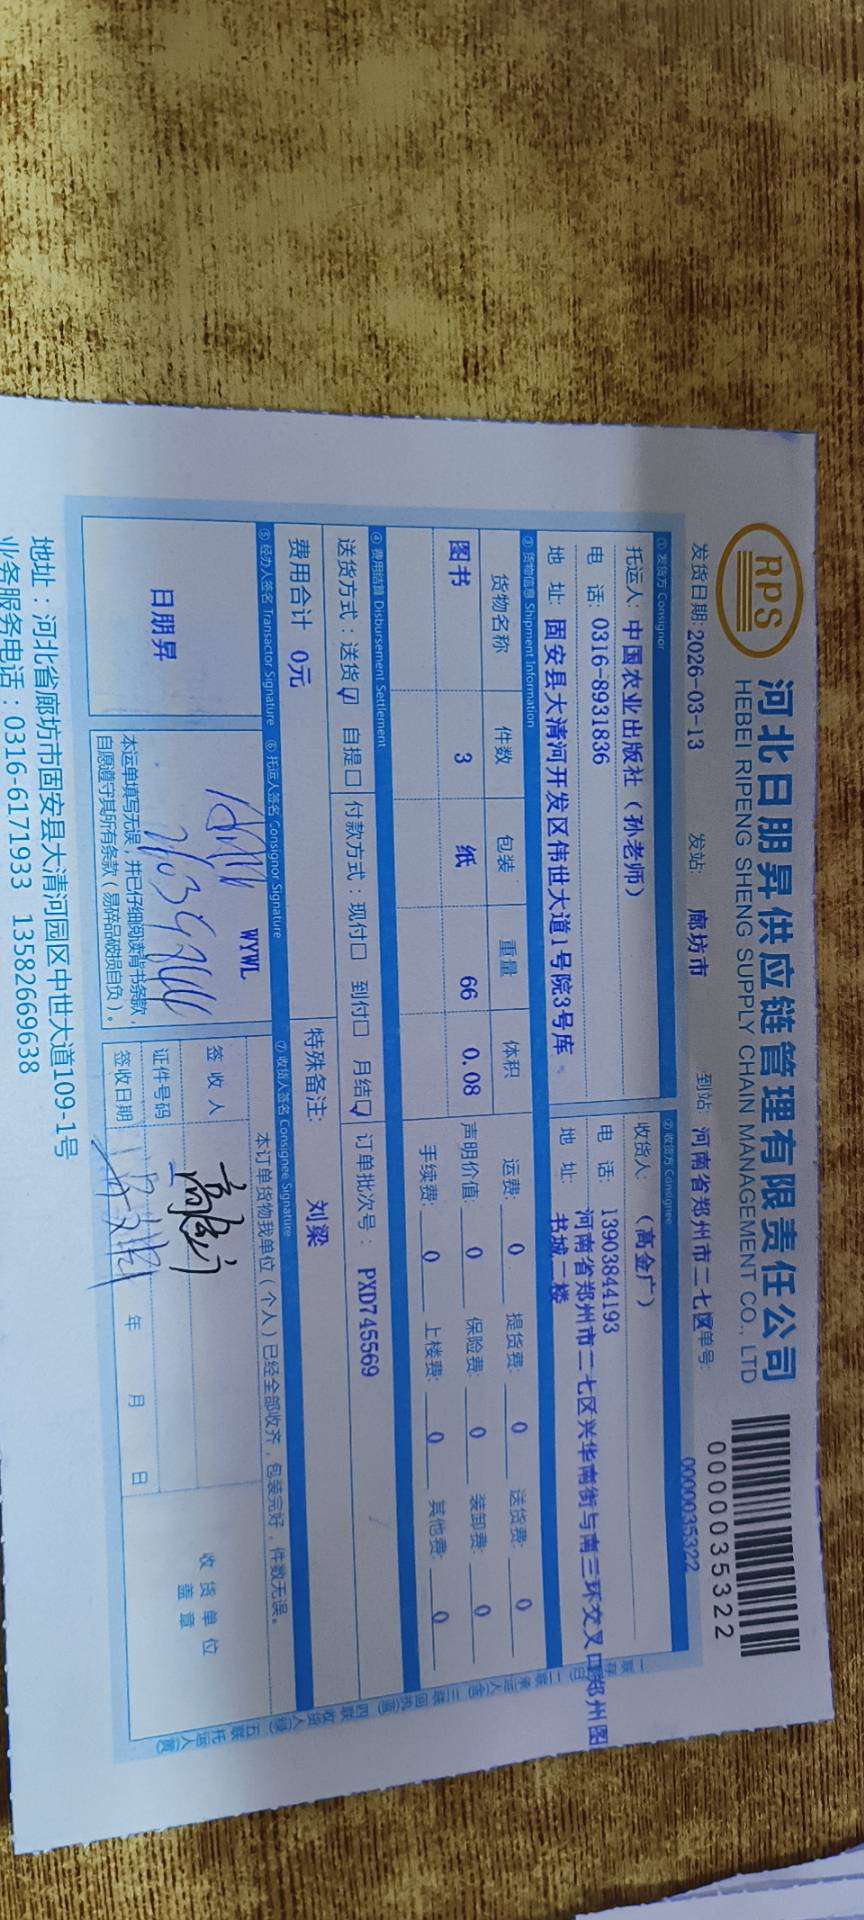 RPS
河北日朋昇供应链管理有限责任公司
HEBEI RIPENG SHENG SUPPLY CHAIN MANAGEMENT CO., LTD
0000035322
发货日期: 2026-03-13 发站: 廊坊市 到站: 河南省郑州市二七区 单号: 0000035322
① 发货方 Consignor
托运人: 中国农业出版社（孙老师）
电 话: 0316-8931836
地 址: 固安县大清河开发区伟世大道1号院3号库
② 收货方 Consignee
收货人: （高金广）
电 话: 13903844193
地 址: 河南省郑州市二七区兴华南街与南三环交叉口郑州图
书城二楼
③ 货物信息 Shipment Information
货物名称 件数 包装 重量 体积
图书 3 纸 66 0.08
运费: 0 提货费: 0 送货费: 0
声明价值: 0 保险费: 0 装卸费: 0
手续费: 0 上楼费: 0 其他费: 0
④ 费用结算 Disbursement Settlement
送货方式：送货☑ 自提□ 付款方式：现付□ 到付□ 月结☑ 订单批次号： PXD745569
费用合计 0元 特殊备注: 刘梁
⑤ 经办人签名 Transactor Signature ⑥ 托运人签名 Consignor Signature ⑦ 收货人签名 Consignee Signature
日朋昇
WYWL
本运单填写无误，并已仔细阅读背书条款，
自愿遵守其所有条款（易碎品破损自负）。
本订单货物我单位（个人）已经全部收齐，包装完好，件数无误。
签 收 人
证件号码
签收日期 年 月 日
收 货 单 位
盖 章
地址：河北省廊坊市固安县大清河园区中世大道109-1号
业务服务电话：0316-6171933 13582669638